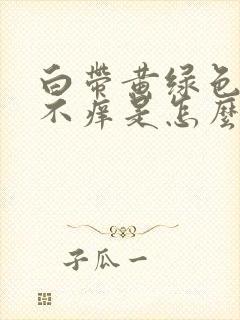 白带黄绿色
不痒是怎麽
子瓜一